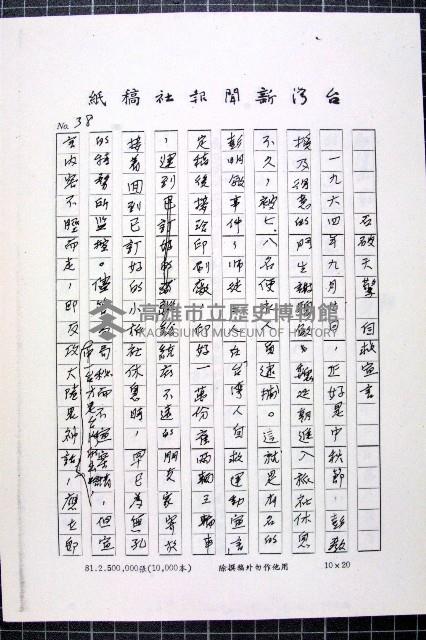 台灣新聞報社稿紙
No. 38
石破天驚 自救宣言
一九六四年九月廿日，正好是中秋節，彭教
授及得意的門生謝聰敏、魏廷朝進入旅社休息
不久，被七、八名便衣人員逮捕。這就是有名的
彭明敏事件，師徒三人在台灣人自救運動宣言
定稿後接洽印刷廠印好一萬份僱兩輛三輪車
，運到早訂好的
接著回到已訂好的小旅社休息時，早已為無孔
的特務所監控。儘管當局秘而不宣，但宣
言內容不脛而走，即反攻大陸是神話，應立即
高雄市立歷史博物館
KAOHSIUNG MUSEUM OF HISTORY
81.2.500,000張(10,000本) 除撰稿外勿作他用 10×20